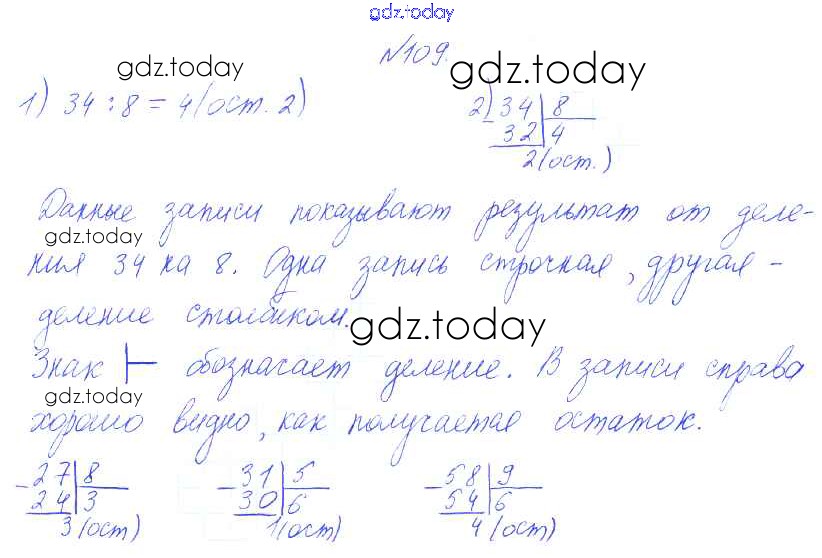 gdz.today
№109.
gdz.today
gdz.today
1) 34 : 8 = 4 (ост. 2)
2) 34 8
- 32 4
2 (ост.)
Данные записи показывают результат от деле-
gdz.today
ния 34 на 8. Одна запись строчная, другая -
деление столбиком.
gdz.today
Знак ⊢ обозначает деление. В записи справа
gdz.today
хорошо видно, как получается остаток.
- 27 8 - 31 5 - 58 9
24 3 30 6 54 6
3 (ост) 1 (ост) 4 (ост)